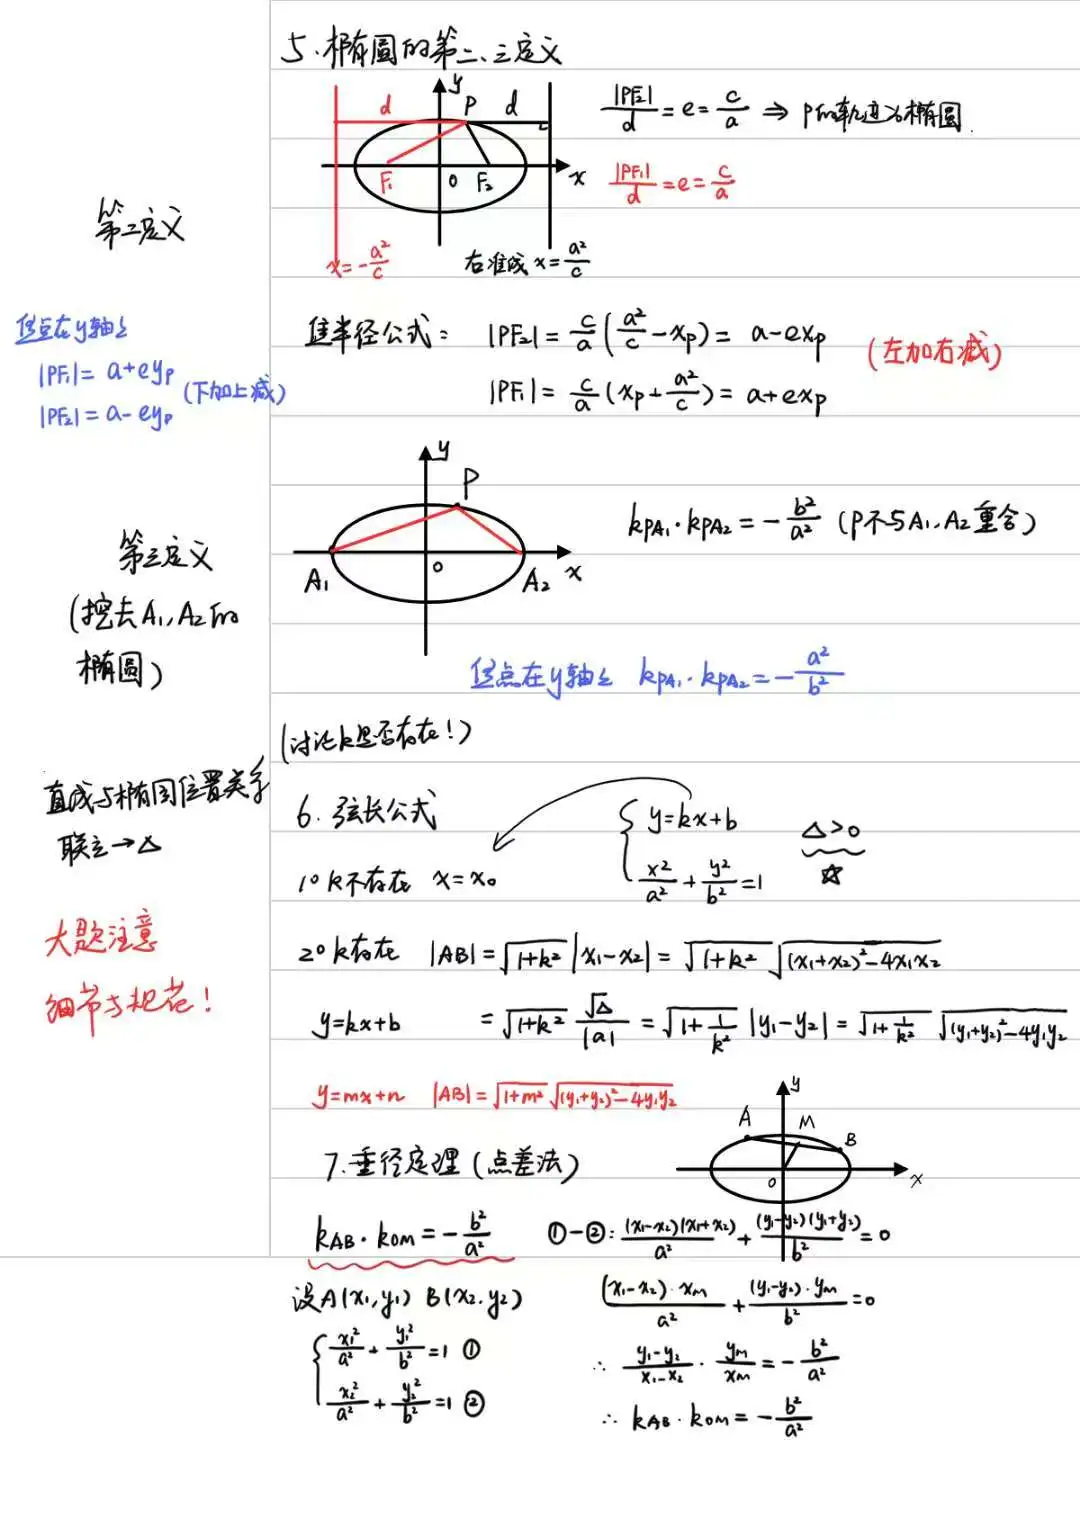 5.椭圆的第二、三定义
y
d P d
F₁ 0 F₂ x
x=-a²/c 右准线 x=a²/c
|PF₂|/d=e=c/a ⇒ P的轨迹为椭圆.
|PF₁|/d=e=c/a
第二定义
焦点在y轴上
|PF₁|=a+eyₚ
|PF₂|=a-eyₚ
(下加上减)
焦半径公式: |PF₂|=c/a(a²/c-xₚ)=a-exₚ
|PF₁|=c/a(xₚ+a²/c)=a+exₚ
(左加右减)
y
P
A₁ 0 A₂ x
k_PA₁·k_PA₂=-b²/a² (P不与A₁、A₂重合)
第三定义
(挖去A₁、A₂的
椭圆)
焦点在y轴上 k_PA₁·k_PA₂=-a²/b²
(讨论k是否存在!)
直线与椭圆位置关系
联立→△
大题注意
细节与规范!
6.弦长公式
{y=kx+b
x²/a²+y²/b²=1
△>0
☆
1°k不存在 x=x₀
2°k存在 |AB|=√(1+k²)|x₁-x₂|=√(1+k²)√((x₁+x₂)²-4x₁x₂)
y=kx+b =√(1+k²) √△/|a|=√(1+1/k²)|y₁-y₂|=√(1+1/k²)√((y₁+y₂)²-4y₁y₂)
y=mx+n |AB|=√(1+m²)√((y₁+y₂)²-4y₁y₂)
7.垂径定理(点差法)
y
A M B
0 x
k_AB·k_OM=-b²/a²
①-②:(x₁-x₂)(x₁+x₂)/a²+(y₁-y₂)(y₁+y₂)/b²=0
设A(x₁,y₁) B(x₂.y₂)
(x₁-x₂)·x_M/a²+(y₁-y₂)·y_M/b²=0
{x₁²/a²+y₁²/b²=1 ①
x₂²/a²+y₂²/b²=1 ②
∴ y₁-y₂/x₁-x₂·y_M/x_M=-b²/a²
∴ k_AB·k_OM=-b²/a²